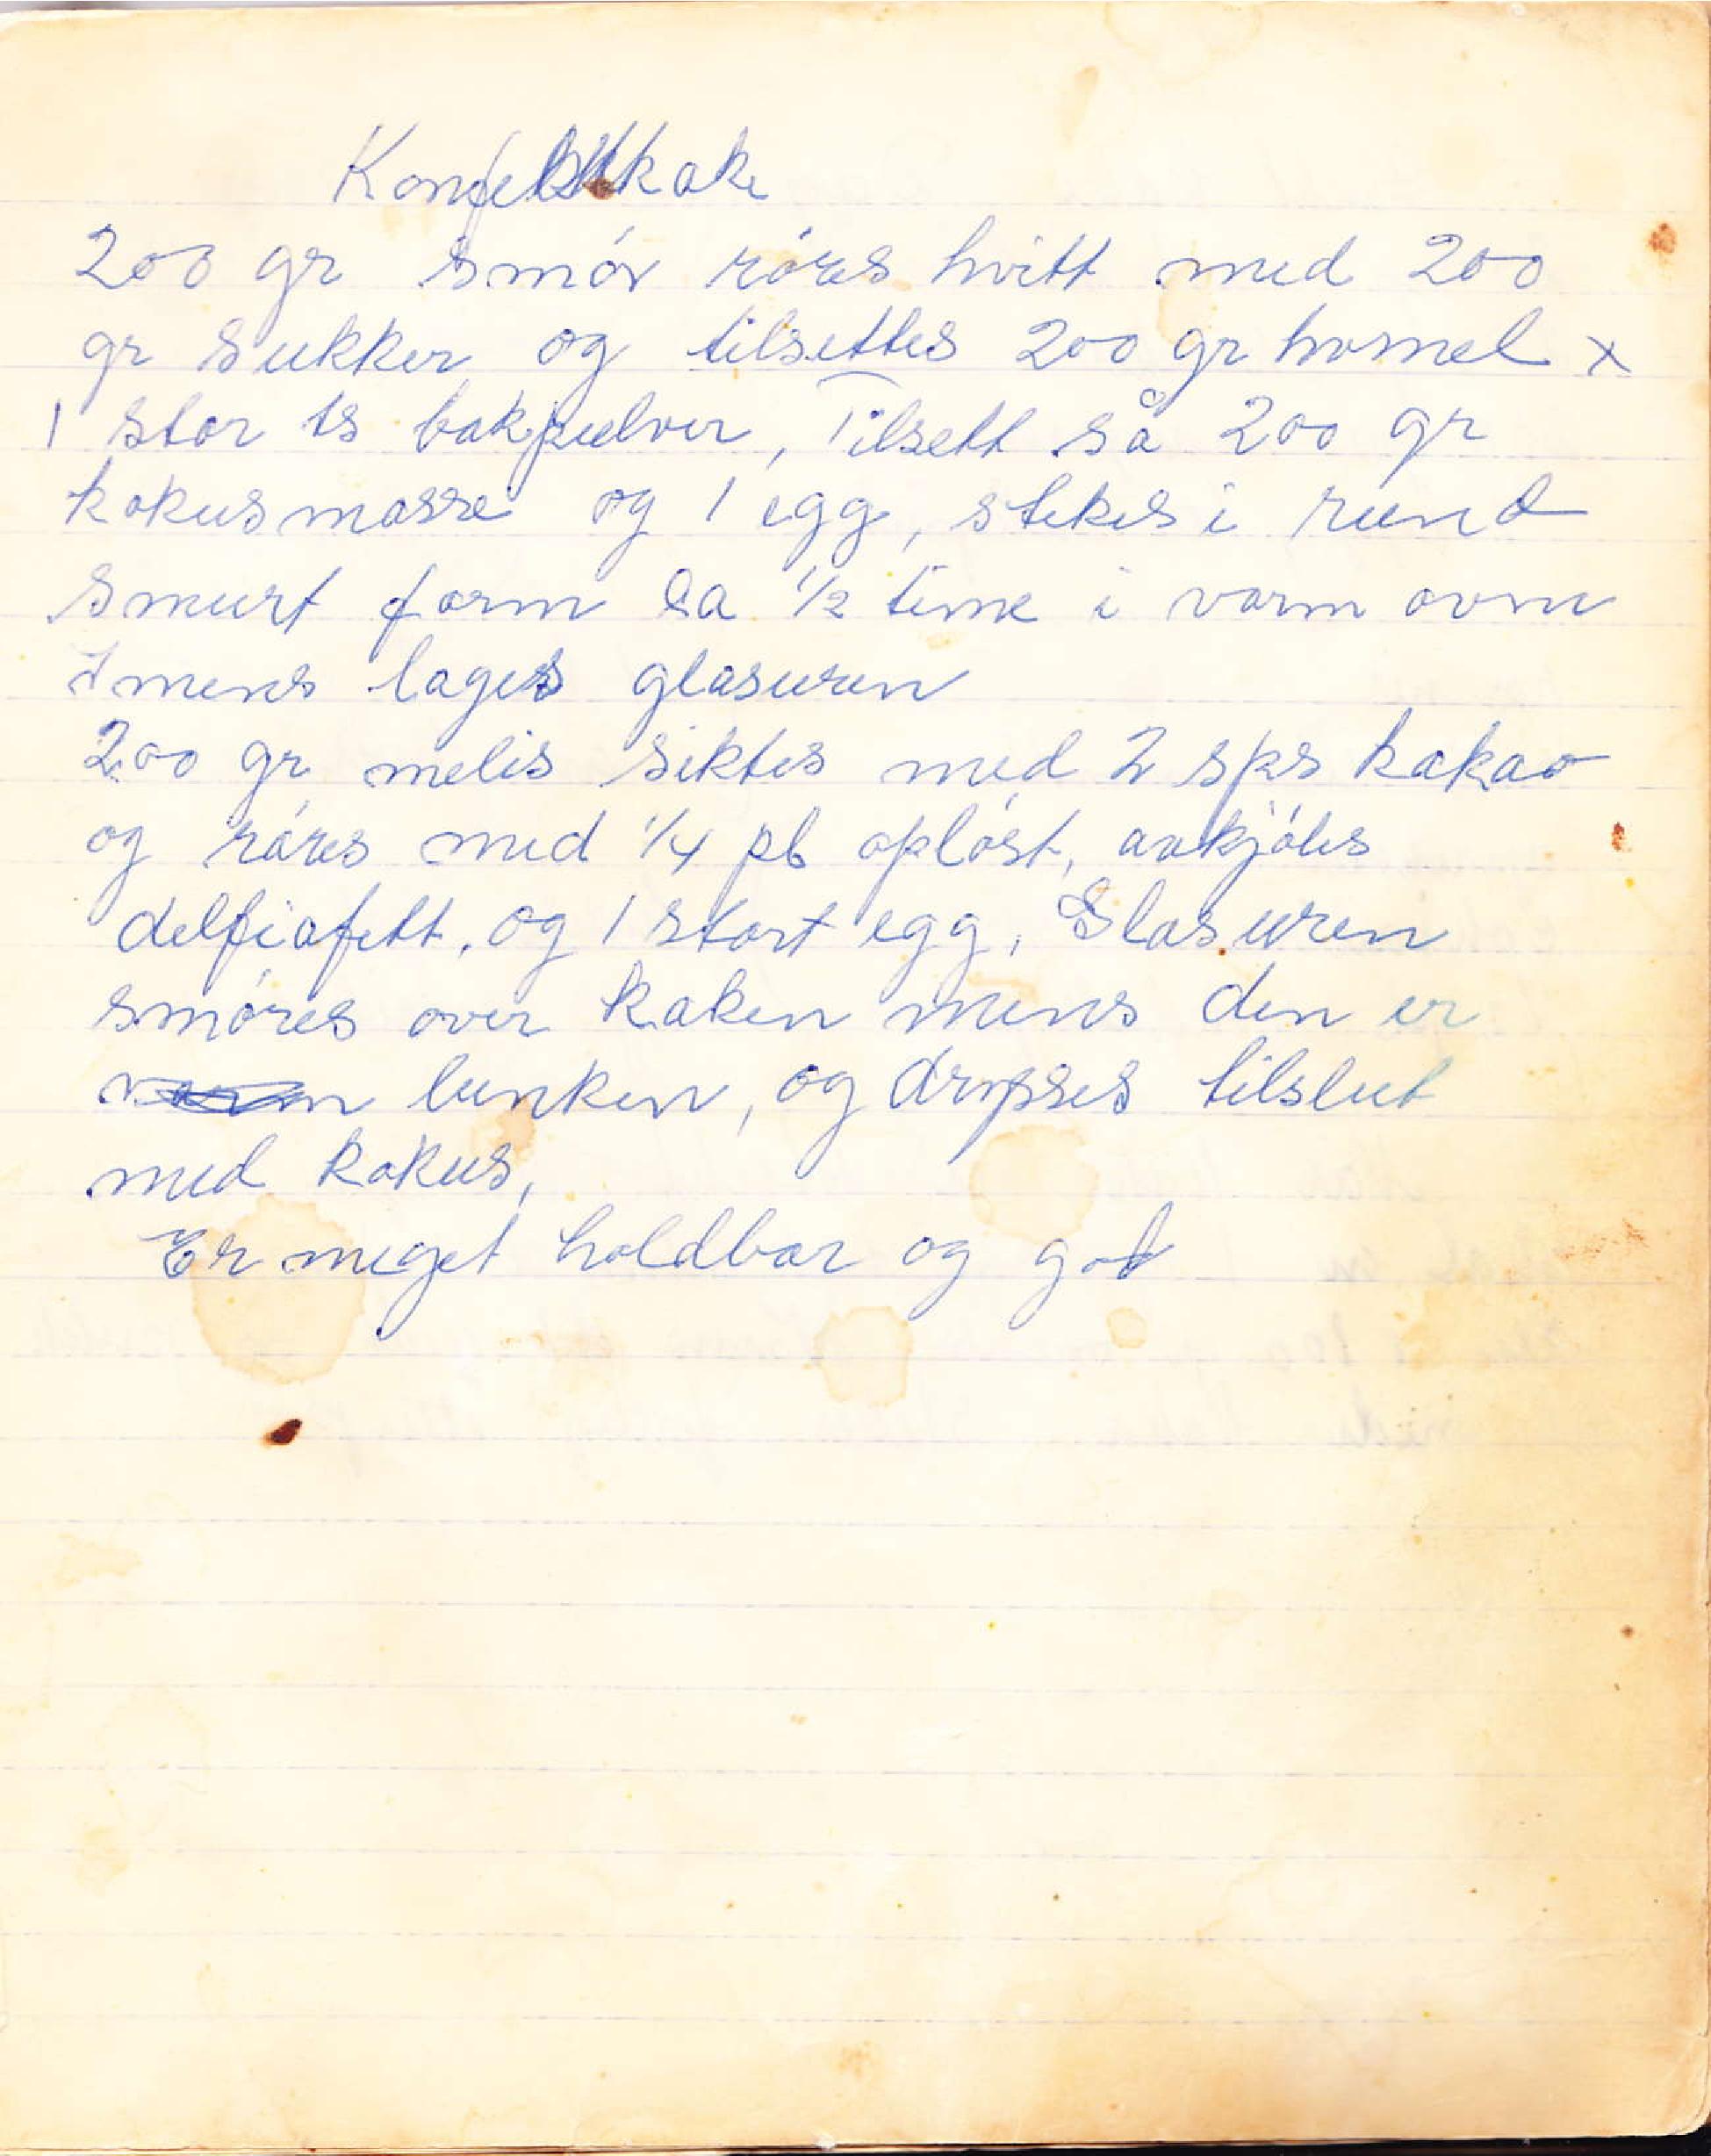 Konfektkake
200 gr smór róres hvitt med 200
gr sukker og tilsettes 200 gr hvmel x
1 stor ts bakpulver, Tilsett så 200 gr
kokusmasse og 1 egg, stekes i rund
smurt form ca 1/2 time i varm ovn
Imens lages glasuren
200 gr melis siktes med 2 sps kakao
og róres med 1/4 pk opløst, avkjóles
delfiafett, og 1 stort egg, Glasuren
smóres over kaken mens den er
varm lunken, og drysses tilslut
med kokus,
Er meget holdbar og god